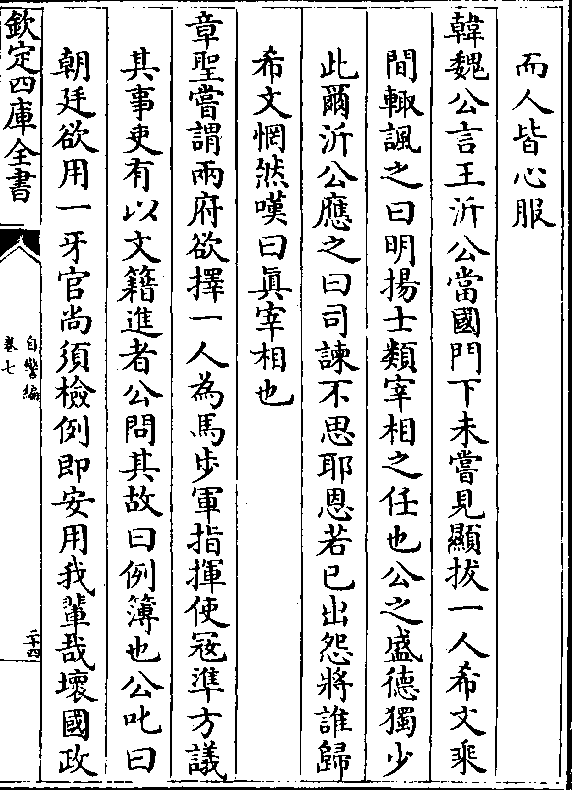 而人皆心服
韓魏公言王沂公當國門下未嘗見顯拔一人希文乘
間輙諷之曰明揚士類宰相之任也公之盛德獨少
此爾沂公應之曰司諫不思耶恩若已出怨將誰歸
希文惘然嘆曰眞宰相也
章聖嘗謂兩府欲擇一人為馬步軍指揮使冦準方議
其事吏有以文籍進者公問其故曰例簿也公叱曰
朝廷欲用一牙官尚須檢例即安用我輩哉壞國政
欽定四庫全書
自警編
卷七
二十四